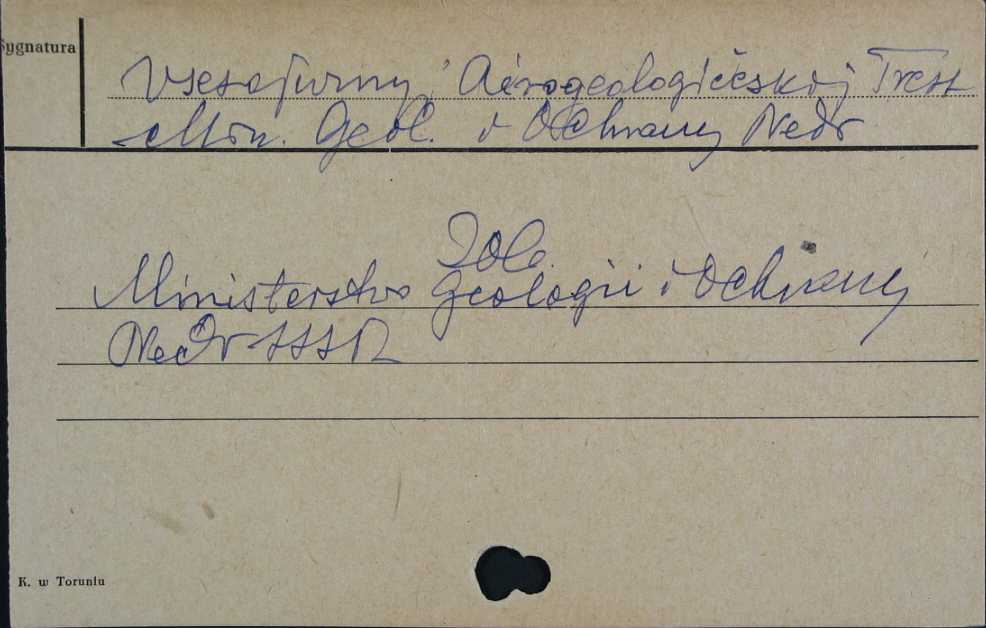 Sygnatura
Vsesojuzny, Aėrogeologičeskoj Trest
Min. Geol. i Ochrany Nedr
zob.
Ministerstvo Geologii i Ochrany
Nedr SSSR
K. w Toruniu